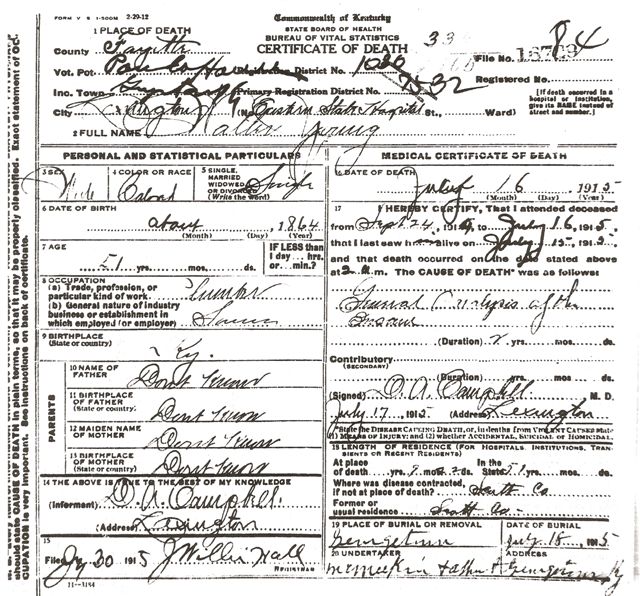 FORM V S 1-500M 2-29-12
Commonwealth of Kentucky
STATE BOARD OF HEALTH
BUREAU OF VITAL STATISTICS
CERTIFICATE OF DEATH
1 PLACE OF DEATH
County Fayette
File No.
84
Vot. Pct.
Registration District No. 1030
Inc. Town
Primary Registration District No.
Registered No.
City Lexington (No. Eastern State Hospital St., Ward)
[If death occurred in a hospital or institution, give its NAME instead of street and number.]
2 FULL NAME Young
PERSONAL AND STATISTICAL PARTICULARS
3 SEX Male
4 COLOR OR RACE Colored
5 SINGLE, MARRIED WIDOWED OR DIVORCED (Write the word) Single
6 DATE OF BIRTH about 1864
(Month) (Day) (Year)
7 AGE 51 yrs. mos. ds.
IF LESS than 1 day... hrs. or... min.?
8 OCCUPATION
(a) Trade, profession, or particular kind of work
(b) General nature of industry business or establishment in which employed (or employer)
9 BIRTHPLACE
(State or country) Ky.
PARENTS
10 NAME OF FATHER Dont Know
11 BIRTHPLACE OF FATHER (State or country) Dont Know
12 MAIDEN NAME OF MOTHER Dont Know
13 BIRTHPLACE OF MOTHER (State or country) Dont Know
14 THE ABOVE IS TRUE TO THE BEST OF MY KNOWLEDGE
(Informent) O. A. Campbell
(Address) Lexington
15
Filed 30 1915 J Willis Hall
REGISTRAR
11-3184
MEDICAL CERTIFICATE OF DEATH
16 DATE OF DEATH
July 16, 1915
(Month) (Day) (Year)
17 I HEREBY CERTIFY, That I attended deceased
from Sept 24, 191 to July 16, 1915
that I last saw alive on July 15, 1915
and that death occurred on the date stated above
at 2 m. The CAUSE OF DEATH* was as follows
General Paralysis of the
Insane
(Duration) yrs. mos. ds.
Contributory
(SECONDARY)
(Duration) yrs. mos. ds.
(Signed) O. A. Campbell M. D.
July 17, 1915 (Address) Lexington
*State the DISEASE CAUSING DEATH, or, in deaths from VIOLENT CAUSES state (1) MEANS OF INJURY; and (2) whether ACCIDENTAL, SUICIDAL or HOMICIDAL.
18 LENGTH OF RESIDENCE (FOR HOSPITALS, INSTITUTIONS, TRANSIENTS OR RECENT RESIDENTS)
At place of death yrs. mos. ds. In the State 51 yrs. mos. ds.
Where was disease contracted, if not at place of death? Scott Co
Former or usual residence Scott Co.
19 PLACE OF BURIAL OR REMOVAL
Georgetown
DATE OF BURIAL
July 18, 1915
20 UNDERTAKER
ADDRESS
Georgetown Ky
should state CAUSE OF DEATH in plain terms, so that it may be properly classified. Exact statement of OCCUPATION is very important. See instructions on back of certificate.